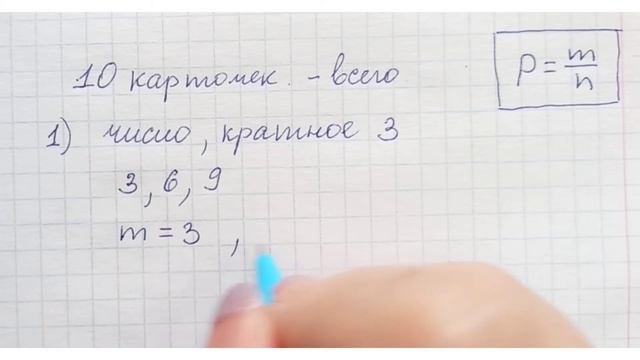 10 карточек - всего
P = m/n
1) число, кратное 3
3, 6, 9
m = 3,